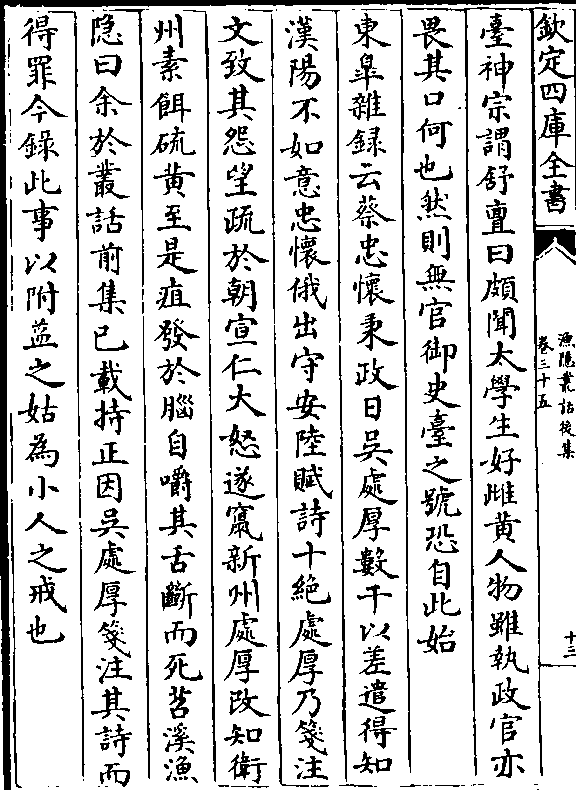 欽定四庫全書
漁隱叢話後集
卷三十五
十三
臺神宗謂舒亶曰頗聞太學生好雌黃人物雖執政官亦
畏其口何也然則無官御史臺之號恐自此始
東臯雜録云蔡忠懷秉政日吳處厚數干以差遣得知
漢陽不如意忠懷俄出守安陸賦詩十絶處厚乃箋注
文致其怨望疏於朝宣仁大怒遂竄新州處厚改知衛
州素餌硫黃至是疽發於腦自嚼其舌斷而死苕溪漁
隐曰余於叢話前集已載持正因吳處厚箋注其詩而
得罪今錄此事以附益之姑為小人之戒也